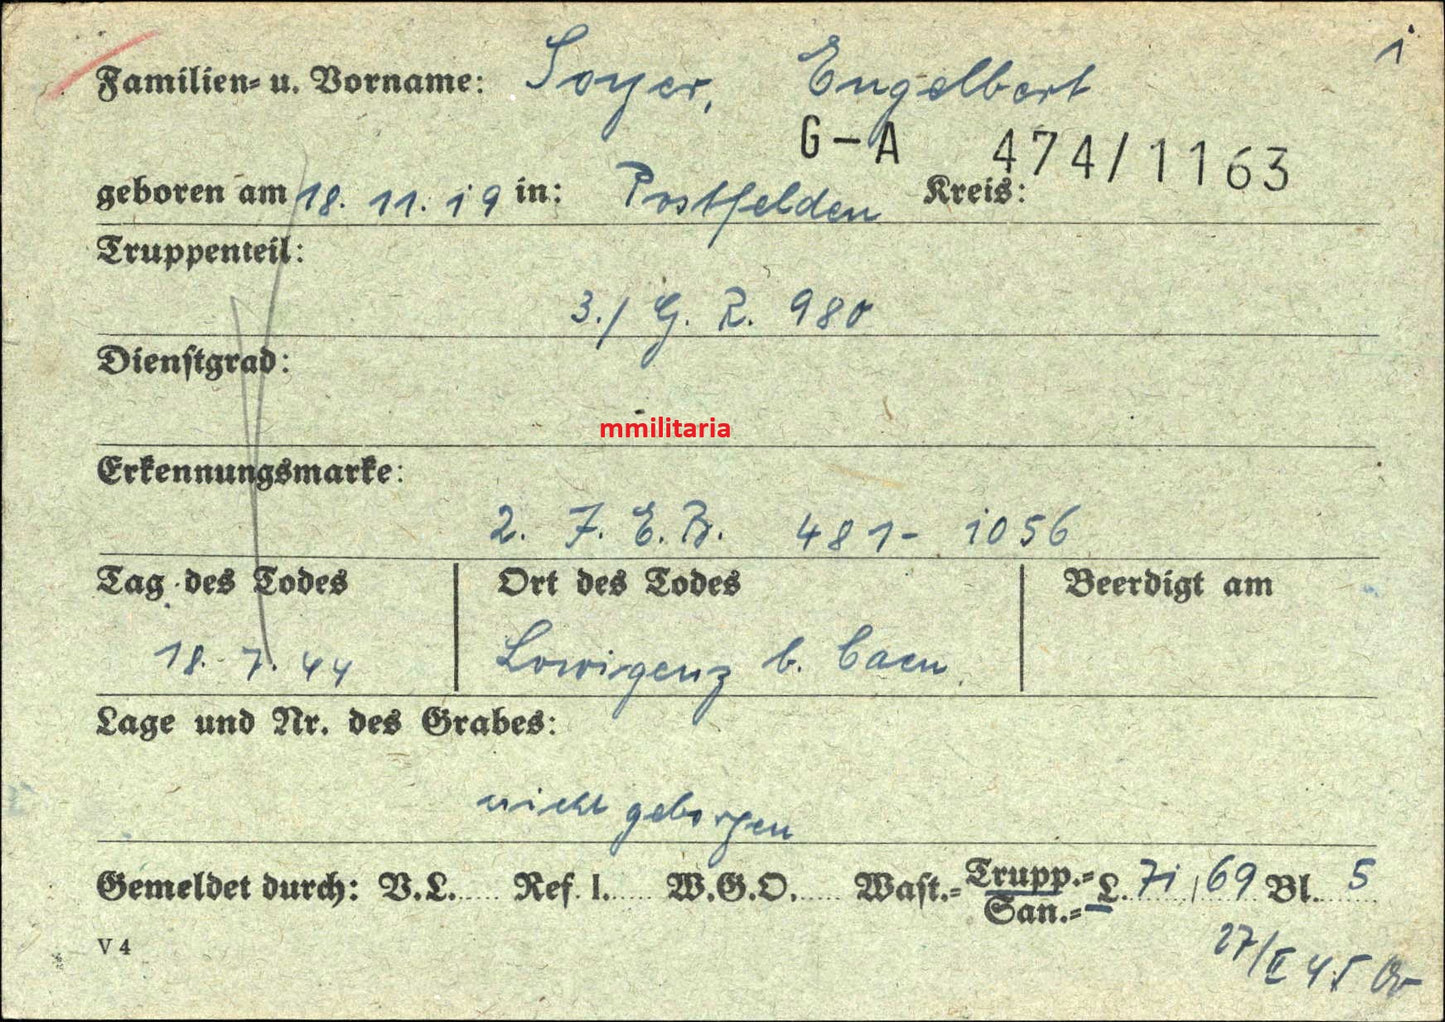 Familien- u. Vorname: Soyer, Engelbert
G-A 474/1163
geboren am 18. 11. 19 in: Postfelden Kreis:
Truppenteil:
3./ G. R. 980
Dienstgrad:
mmilitaria
Erkennungsmarke:
2. J. E. B. 481- 1056
Tag des Todes Ort des Todes Beerdigt am
18. 7. 44 b. Caen
Lage und Nr. des Grabes:
nicht geborgen
Gemeldet durch: V.L..... Ref. I...... W.G.O...... Wast.= Trupp.=
San.= L. 71, 69 Bl. 5
V 4
27/II 45